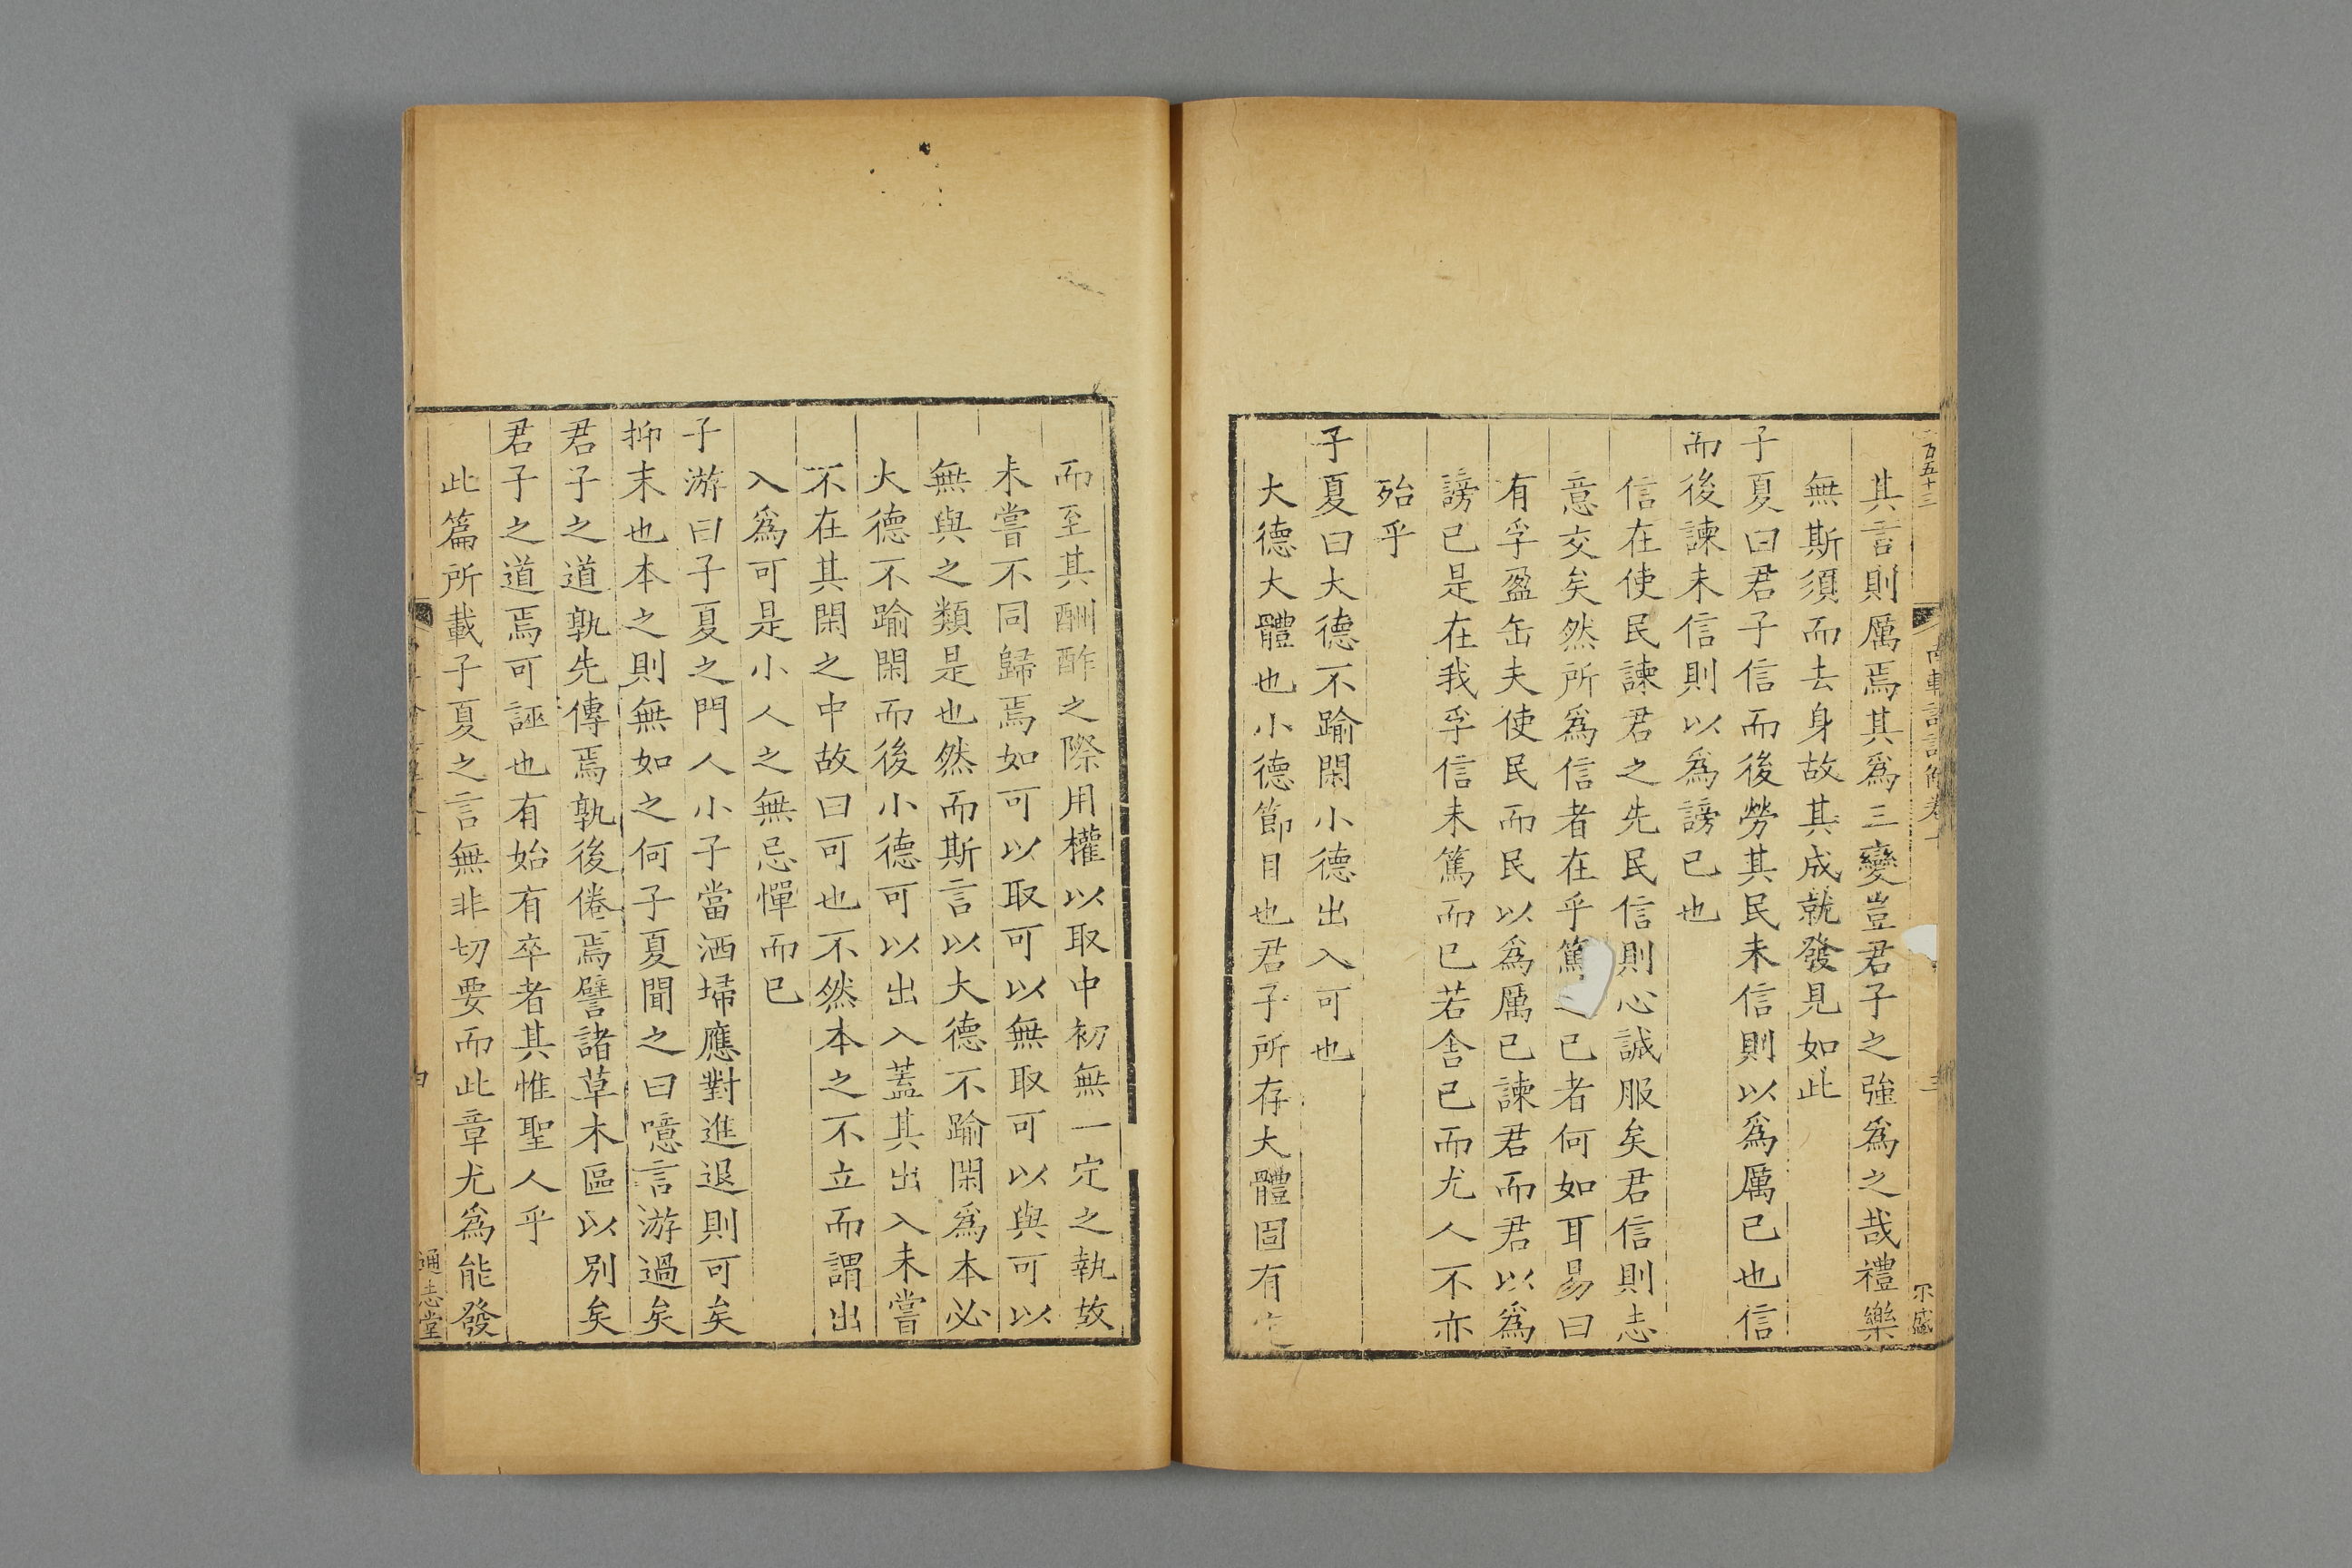 百五十三
南軒論語解卷十
三
其言則厲焉其爲三變豈君子之強爲之哉禮樂
無斯須而去身故其成就發見如此
子夏曰君子信而後勞其民未信則以爲厲已也信
而後諫未信則以爲謗已也
信在使民諫君之先民信則心誠服矣君信則志
意交矣然所爲信者在乎篤已者何如耳易曰
有孚盈缶夫使民而民以爲厲已諫君而君以爲
謗已是在我孚信未篤而已若舍已而尤人不亦
殆乎
子夏曰大德不踰閑小德出入可也
大德大體也小德節目也君子所存大體固有
而至其酬酢之際用權以取中初無一定之執故
未嘗不同歸焉如可以取可以無取可以與可以
無與之類是也然而斯言以大德不踰閑爲本必
大德不踰閑而後小德可以出入蓋其出入未嘗
不在其閑之中故曰可也不然本之不立而謂出
入爲可是小人之無忌憚而已
子游曰子夏之門人小子當洒埽應對進退則可矣
抑末也本之則無如之何子夏聞之曰噫言游過矣
君子之道孰先傳焉孰後倦焉譬諸草木區以別矣
君子之道焉可誣也有始有卒者其惟聖人乎
此篇所載子夏之言無非切要而此章尤爲能發
通志堂